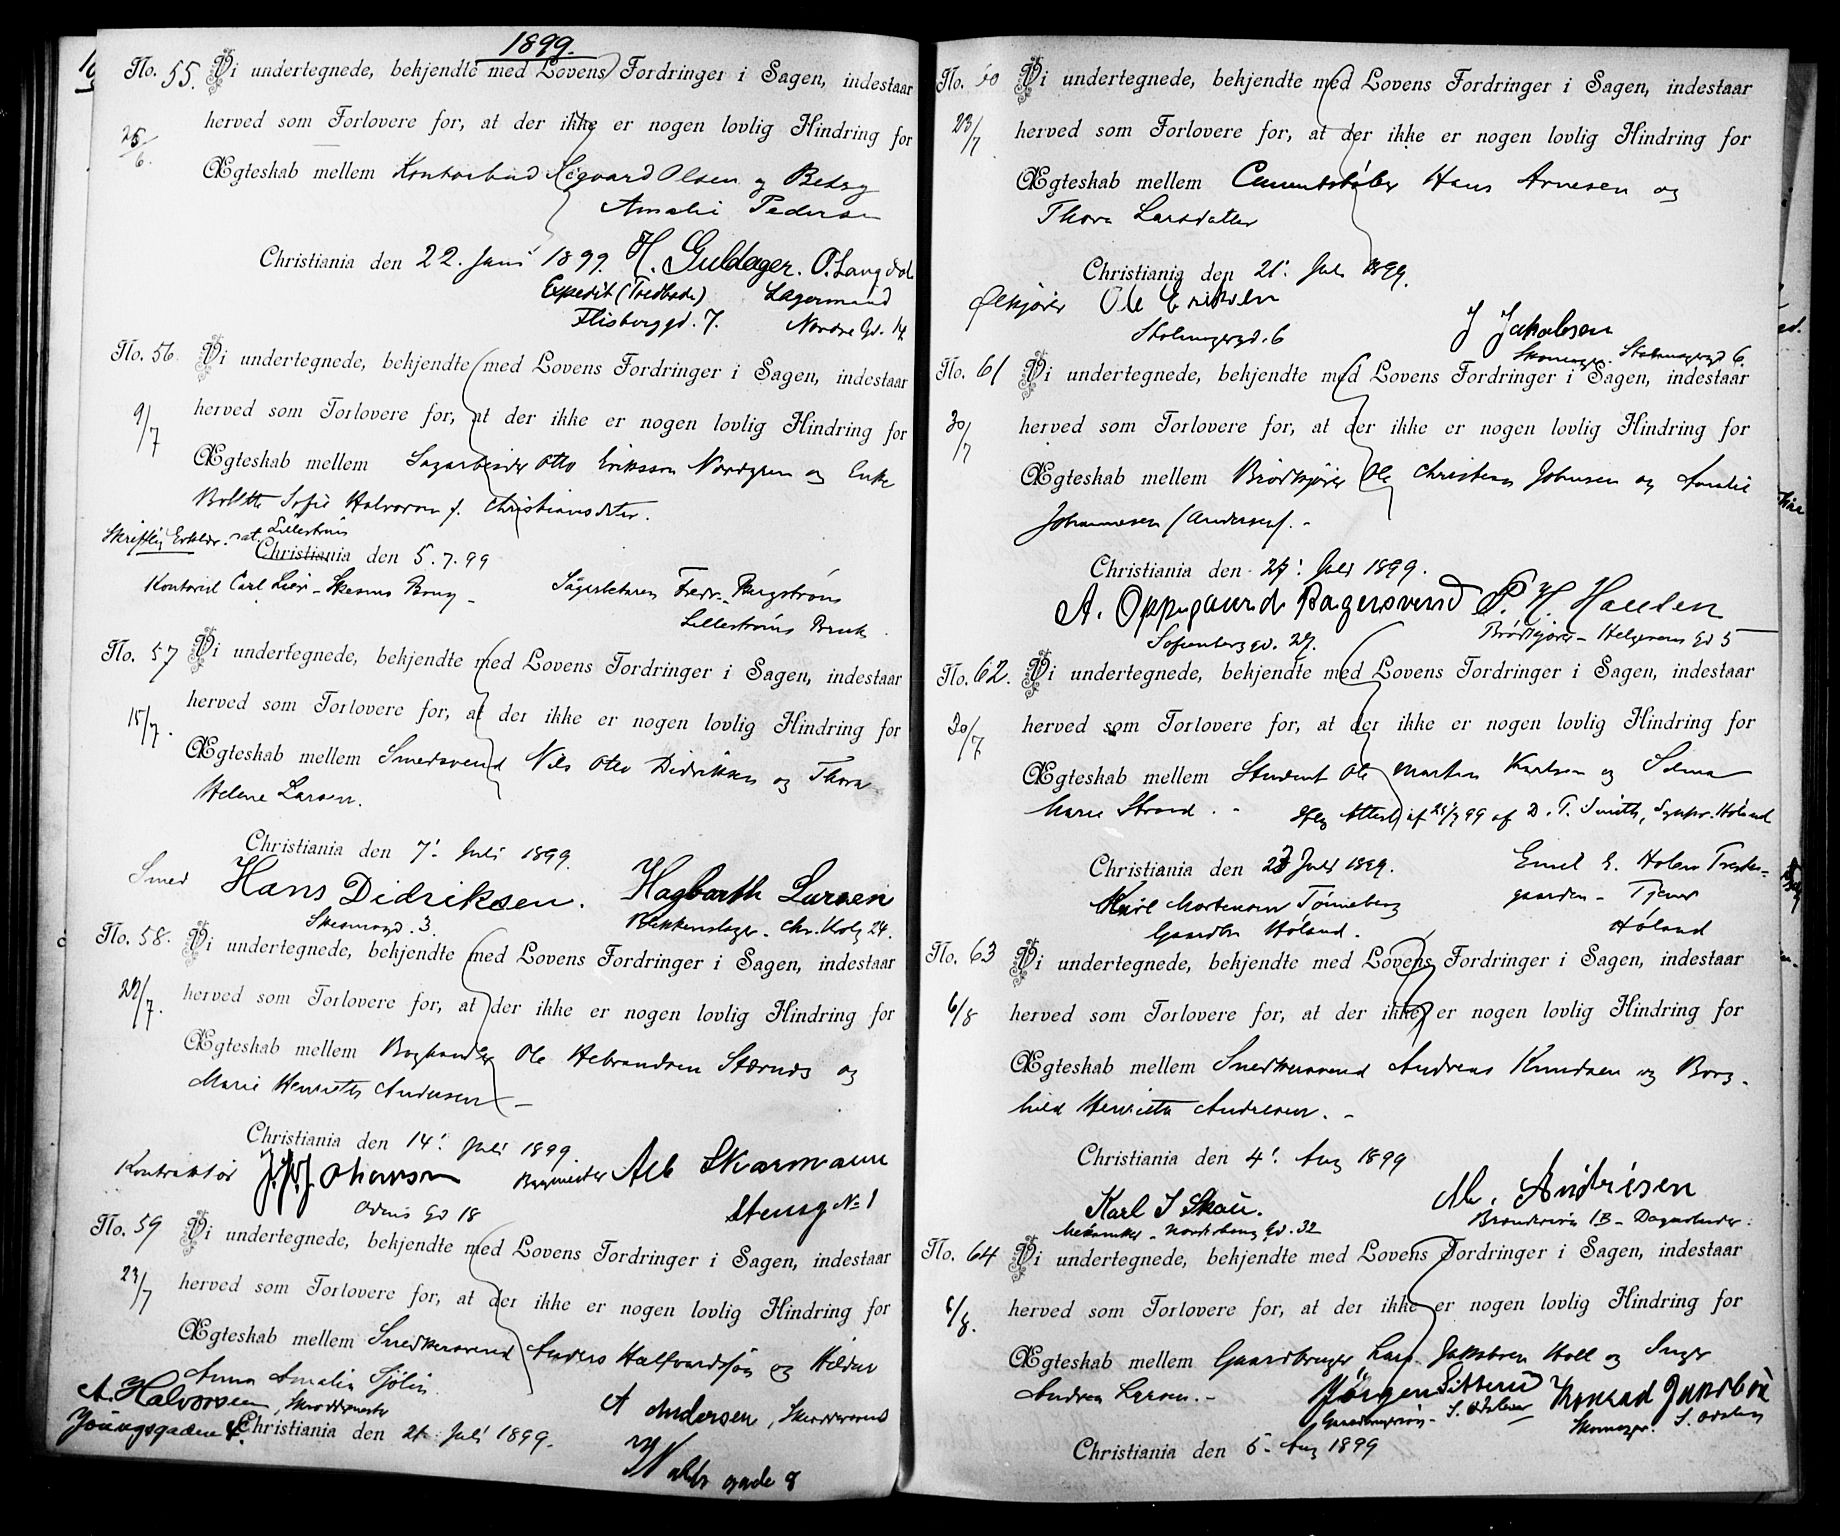 1899.
No. 55. Vi undertegnede, bekjendte med Lovens Fordringer i Sagen, indestaar
25/6. herved som Forlovere for, at der ikke er nogen lovlig Hindring for
Ægteskab mellem Kontorbud Sigvard Olsen og Betsy
Amalie Pedersen
Christiania den 22. Juni 1899. H. Guldager. O. Langdal
Expedit (Tredbode) Lagermand
Flisberggd. 7. Nordre Gd. 14
No. 56. Vi undertegnede, bekjendte med Lovens Fordringer i Sagen, indestaar
9/7 herved som Forlovere for, at der ikke er nogen lovlig Hindring for
Ægteskab mellem Sagarbeider Otto Eriksson Nordgren og Enke
Bolette Sofie Halvorsen f. Christiansdtr.
Skriftlig Erklær. dat. Lillestrøm
Christiania den 5.7.99
Kontorist Carl Lier - Skesmo Brug - Sagarbeteren Fredr. Bergstrøm
Lillestrøms Brug.
No. 57 Vi undertegnede, bekjendte med Lovens Fordringer i Sagen, indestaar
15/7. herved som Forlovere for, at der ikke er nogen lovlig Hindring for
Ægteskab mellem Smedsvend Nils Otto Didriksen og Thora
Helene Larsen.
Christiania den 7' Juli 1899.
Smed Hans Didriksen. Hagbarth Larsen
3. Blikkenslager. Chr. Krohg 24.
No. 58. Vi undertegnede, bekjendte med Lovens Fordringer i Sagen, indestaar
22/7. herved som Forlovere for, at der ikke er nogen lovlig Hindring for
Ægteskab mellem Boghandler Ole Hebrandsen Stærnes og
Marie Henriette Andersen -
Christiania den 14' Juli 1899.
Kontraktør J. Johanson Bygmester Alb Skarmann
Odins Gd 18 Stensg No 1
No. 59 Vi undertegnede, bekjendte med Lovens Fordringer i Sagen, indestaar
23/7 herved som Forlovere for, at der ikke er nogen lovlig Hindring for
Ægteskab mellem Snedkersvend Anders Halfvardsson og Hildur
Anna Amalia Sjölin.
A. Halvorsen, Skræddermester A Andersen, Skræddersvend
Youngsgaden 4. Christiania den 21 Juli 1899.
gade 8
No. 60 Vi undertegnede, bekjendte med Lovens Fordringer i Sagen, indestaar
23/7 herved som Forlovere for, at der ikke er nogen lovlig Hindring for
Ægteskab mellem Cementstøber Hans Arnesen og
Thora Larsdatter
Christiania den 21' Juli 1899.
Ølkjører Ole Eriksen J Jakobsen
Stolmagergd. 6 Skomager. Stolmagergd 6.
No. 61 Vi undertegnede, bekjendte med Lovens Fordringer i Sagen, indestaar
30/7 herved som Forlovere for, at der ikke er nogen lovlig Hindring for
Ægteskab mellem Brødkjører Ole Christian Johnsen og Amalie
Johannesen (Andersen). -
Christiania den 27' Juli 1899.
A. Oppegaard Bagersvend P. H. Hansen
Sofienberggd. 27. Brødkjører - Helgesens Gd 5
No. 62. Vi undertegnede, bekjendte med Lovens Fordringer i Sagen, indestaar
30/7 herved som Forlovere for, at der ikke er nogen lovlig Hindring for
Ægteskab mellem Student Ole Martin Karlsen og Selma
Marie Strand. - Iflg Attest af 25/7 99 af D. T. Smith, Sgpr. Høland
Christiania den 27 Juli 1899. Emil E. Holen
Karl Mortensen Tønneberg gaarden - Tjener
Gaardbr Høland. Høland
No. 63 Vi undertegnede, bekjendte med Lovens Fordringer i Sagen, indestaar
6/8 herved som Forlovere for, at der ikke er nogen lovlig Hindring for
Ægteskab mellem Snedkersvend Andreas Knudsen og Borg-
hild Henriette Andresen. -
Christiania den 4' Aug 1899
Karl J Skau. M. Andrésen
Mekaniker - Nordrberg Gd. 32 1B -
No. 64 Vi undertegnede, bekjendte med Lovens Fordringer i Sagen, indestaar
6/8. herved som Forlovere for, at der ikke er nogen lovlig Hindring for
Ægteskab mellem Gaardbruger Lars Jakobsen Holl og Inger
Andrea Larsen. - Jørgen Sitterud Konrad Jakobsen
S. Odalen Skomager. S. Odalen
Christiania den 5' Aug 1899